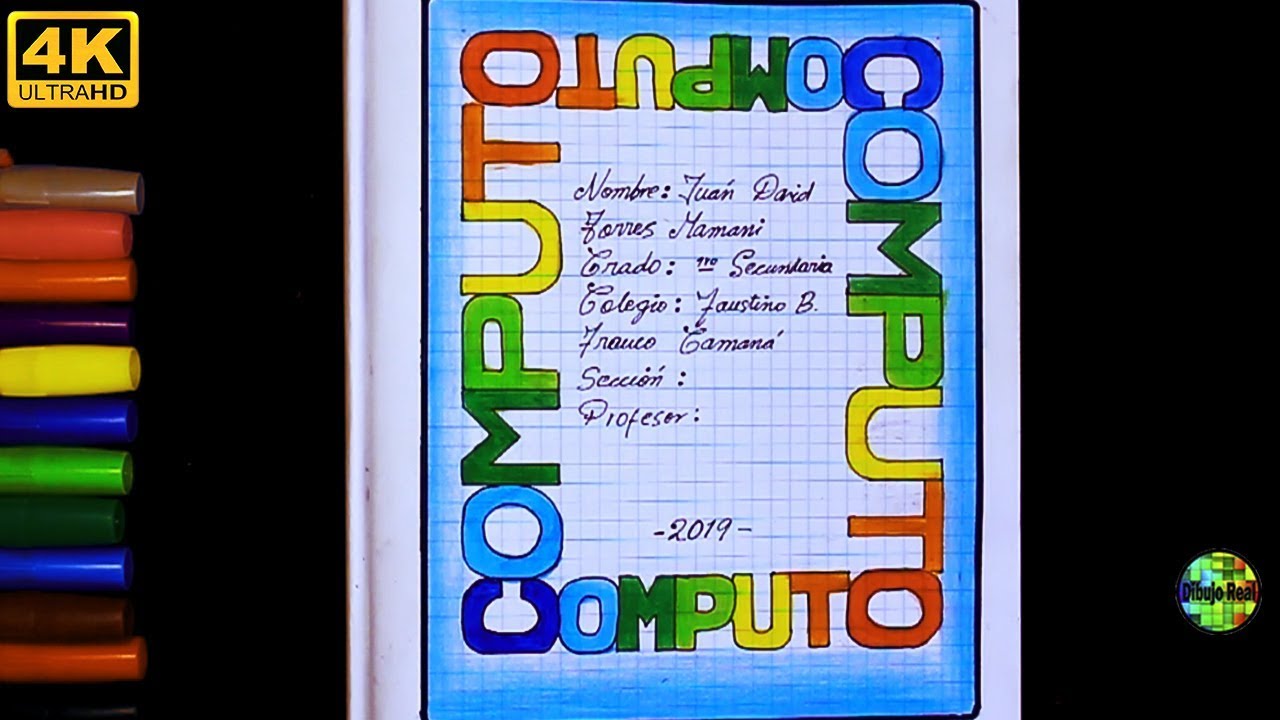 4K
ULTRA HD
COMPUTO
COMPUTO
COMPUTO
Nombre: Juán David
Torres Mamani
Grado: 1ro Secundaria
Colegio: Faustino B.
Franco Camaná
Sección:
Profesor:
-2019-
COMPUTO
Dibujo Real